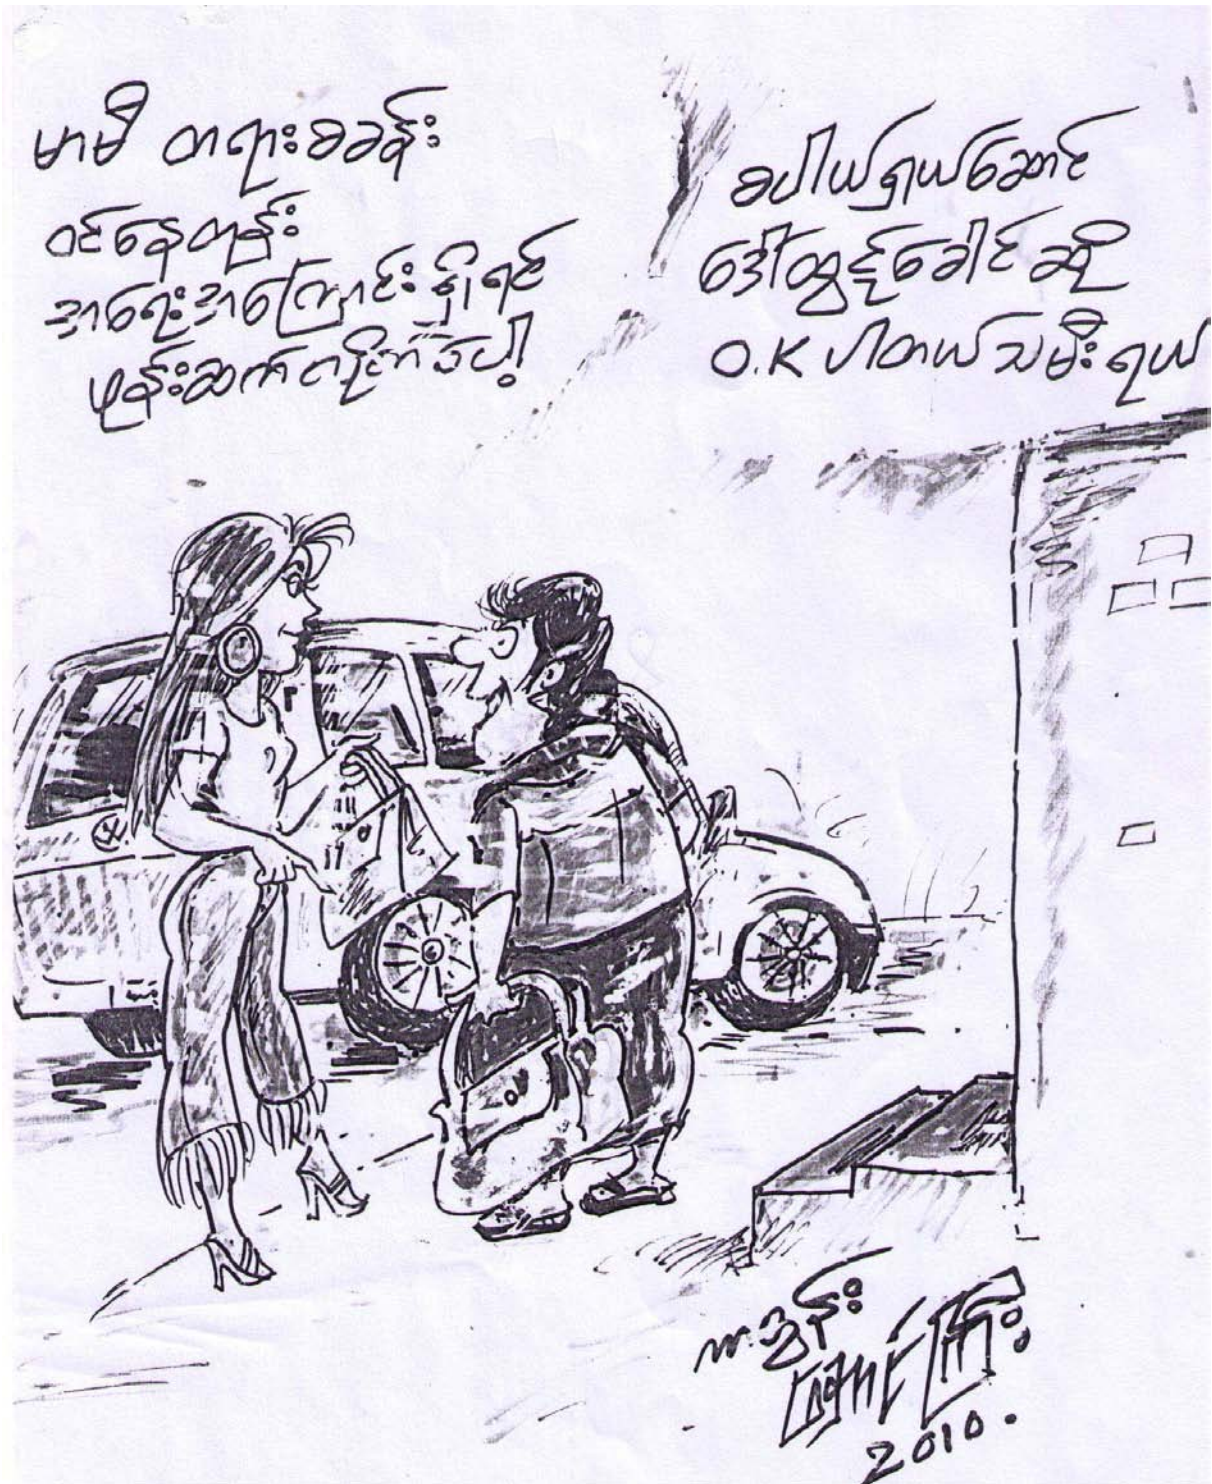 မာမီ တရားစခန်း
ဝင်နေတုန်း
အရေးအကြောင်းရှိရင်
ဖုန်းဆက်လိုက်ပေါ့
စပါယ်ရှယ်ဆောင်
ဒေါ်ထွင့်ခေါင်ဆို
O.K ပါတယ်သမီးရယ်
ကာတွန်း
အောင်ကြီး
2010.